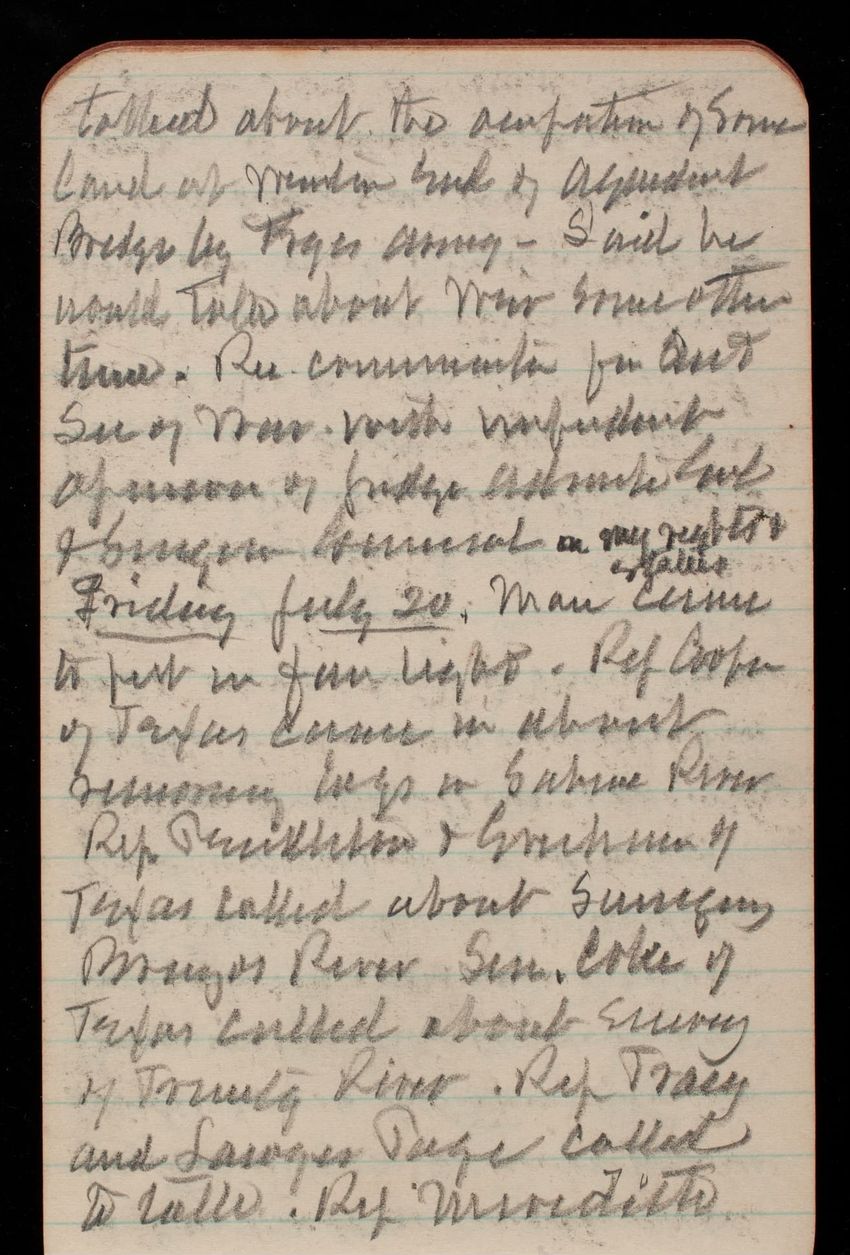 talked about the occupation of some
land at end of Aqueduct
Bridge by - Said he
would talk about some other
time. Rec
Sec of War. with
opinion of Judge Advocate Genl
& Surgeon General on my rights &
Friday July 20. Man came
to put in gas light. Rep Cooper
of Texas came in about
removing logs in Sabine River
Rep. Pendleton & of
Texas called about Surveying
Brazos River Sen. Coke of
Texas called about Survey
of Trinity River. Rep Tracey
and called
to talk. Rep Meredith